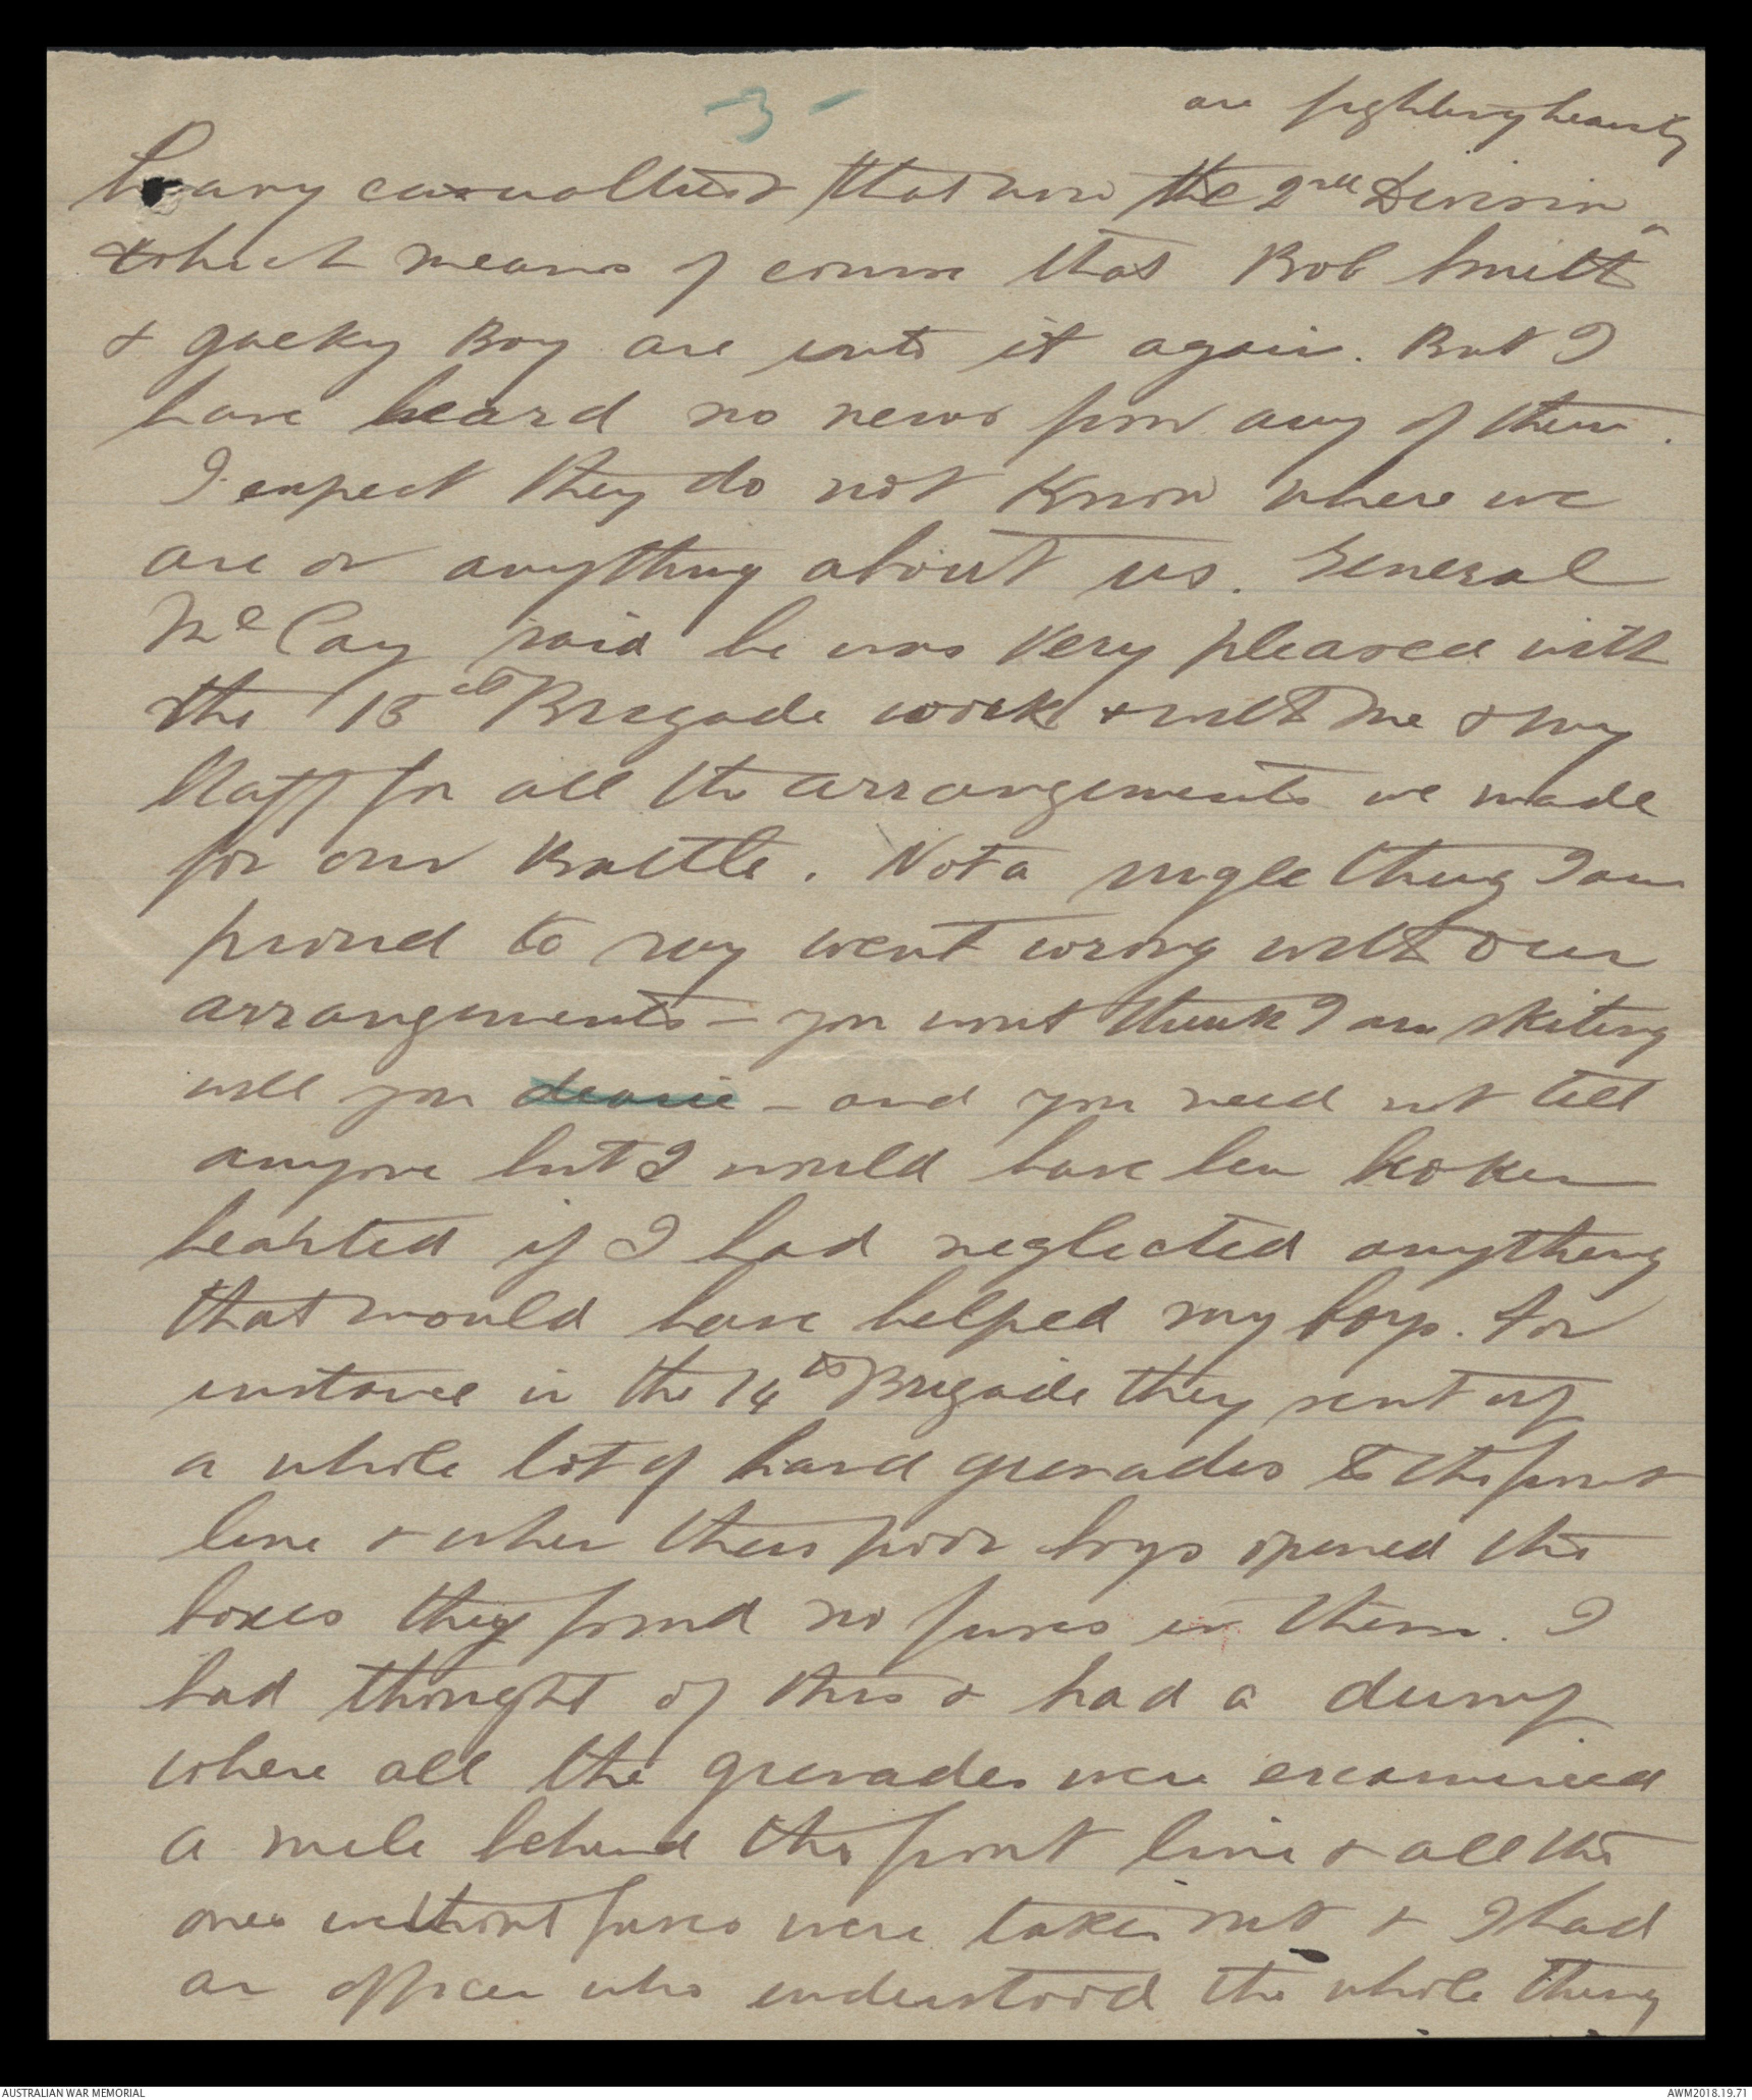 -3-
are fighting heavily
heavy casualties that now the 2nd Division ^
which means of course that Bob Smith
& Jacky Boy are into it again. But I
have heard no news from any of them.
I expect they do not know where we
are or anything about us. General
McCay said he was very pleased with
the 15th Brigade work & with me & my
Staff for all the arrangements we made
for our Battle. Not a single thing I am
proud to say went wrong with our
arrangements – you wont think I am skiting
will you dearie – and you need not tell
anyone but I would have been broken
hearted if I had neglected anything
that would have helped my boys. For
instance in the 14th Brigade they sent up
a whole lot of hand grenades to the front
line & when their poor boys opened the
boxes they found no fuses in them. I
had thought of this & had a dump
where all the grenades were examined
a mile behind the front line & all the
ones without fuses were taken out & I had
an officer who understood the whole thing
AUSTRALIAN WAR MEMORIAL
AWM2018.19.71